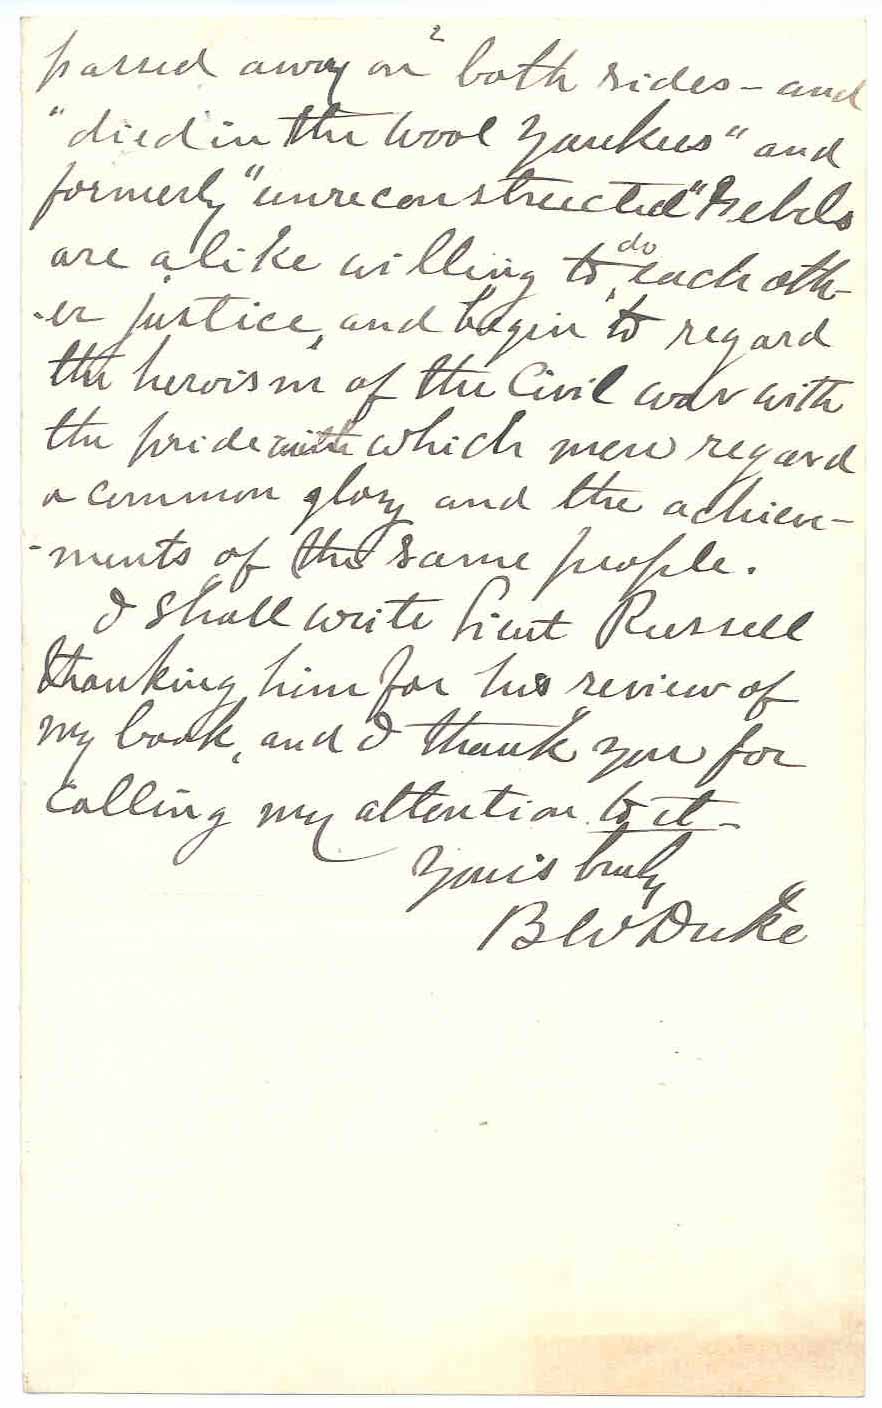 2
passed away on both sides - and
"died in the wool Yankees" and
formerly "unreconstructed" Rebels
are alike willing to do each oth-
-er justice, and begin to regard
the heroism of the Civil war with
the pride with which men regard
a common glory and the achieve-
-ments of the same people.
I shall write Lieut Russell
thanking him for his review of
my book, and I thank you for
calling my attention to it -
Yours truly
B W Duke